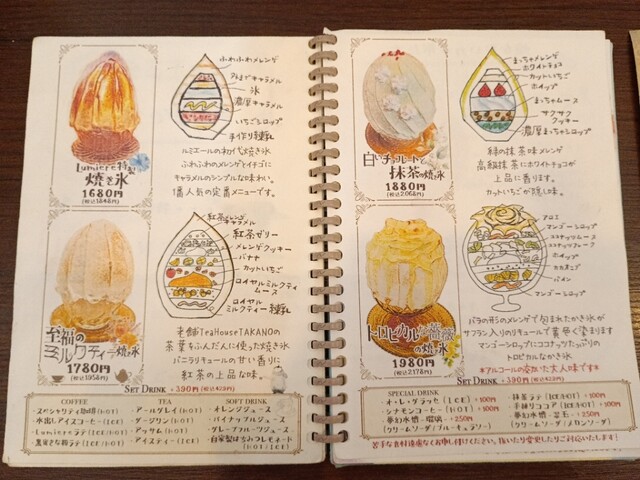 Lumiere特製
焼き氷
1680円
(税込1848円)
ふわふわメレンゲ
キャラメル
氷
濃厚キャラメル
いちごシロップ
手作り練乳
ルミエールの初代焼き氷
ふわふわのメレンゲとイチゴに
キャラメルのシンプルな味わい。
1番人気の定番メニューです。
至福の
ミルクティー焼き氷
1780円
(税込1958円)
紅茶メレンゲ
キャラメル
紅茶ゼリー
メレンゲクッキー
バナナ
カットいちご
ロイヤルミルクティ
ムース
ロイヤル
ミルクティー練乳
老舗TeaHouseTAKANOの
茶葉をふんだんに使った焼き氷
バニラリキュールの甘い香りに
紅茶の上品な味。
SET DRINK +390円(税込429円)
COFFEE
・スペシャリティ珈琲(HOT)
・水出しアイスコーヒー(ICE)
・Lumiereラテ(ICE/HOT)
・黒ごまきな粉ラテ(ICE/HOT)
TEA
・アールグレイ(HOT)
・ダージリン(HOT)
・アッサム(HOT)
・アイスティー(ICE)
SOFT DRINK
・オレンジジュース
・パイナップルジュース
・グレープフルーツジュース
・自家製はちみつレモネード
(HOT/ICE)
白いチョコレートと
抹茶の焼き氷
1880円
(税込2068円)
まっちゃメレンゲ
ホワイトチョコ
カットいちご
ホイップ
まっちゃムース
サクサク
クッキー
濃厚まっちゃシロップ
緑の抹茶味メレンゲ
高級抹茶にホワイトチョコが
上品に香ります。
カットいちごが隠し味。
トロピカルな薔薇
の焼き氷
1980円
(税込2178円)
マンゴーシロップ
ココナッツムース
ココナッツフレーク
ホイップ
パイン
マンゴーシロップ
バラの形のメレンゲで包まれたかき氷が
サフラン入りのリキュールで黄色く染まります
マンゴーシロップにココナッツたっぷりの
トロピカルなかき氷
*アルコールの姿かいた大人味です*
SET DRINK +390円(税込429円)
SPECIAL DRINK
・オ・レ・グラッセ(ICE)+100円
・シナモンコーヒー(HOT)+100円
・夢幻水槽・瑠璃・+250円
(クリームソーダ/ブルーキュラソー)
・抹茶ラテ(ICE/HOT)+100円
・夢幻水槽・翡翠・+250円
(クリームソーダ/メロンソーダ)
苦手な食材遠慮なくお申し付けください。抜いたり変更したりご対応いたします!